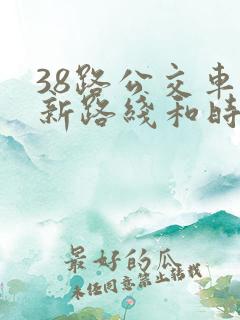 38路公交车
新路线和时
最好的瓜
未经同意禁止转载